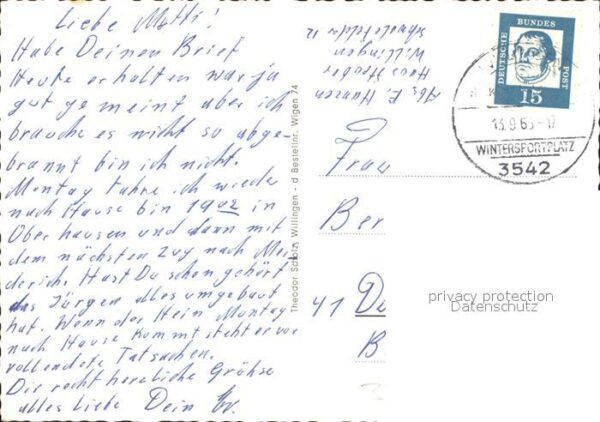 Liebe Mutti!
Habe Deinen Brief
Heute erhalten war ja
gut gemeint aber ich
brauche es nicht so abge-
brannt bin ich nicht.
Montag fahre ich wieder
nach Hause bin 19 02 in
Oberhausen und dann mit
dem nächsten Zug nach Mei
derich. Hast Du schon gehört
das Jürgen alles umgebaut
hat. Wenn der Hein Montag
nach Hause kommt steht er vor
vollendete Tatsachen.
Dir recht herzliche Grühse
alles Liebe Dein
Abs. E. Hansen
Haus
Willingen
Theodor Scholz, Willingen - d Bestellnr. Wigen 74
DEUTSCHE
BUNDES
POST
15
13.9.65-17
WINTERSPORTPLATZ
3542
Frau
Ber
41 Du
B
privacy protection
Datenschutz